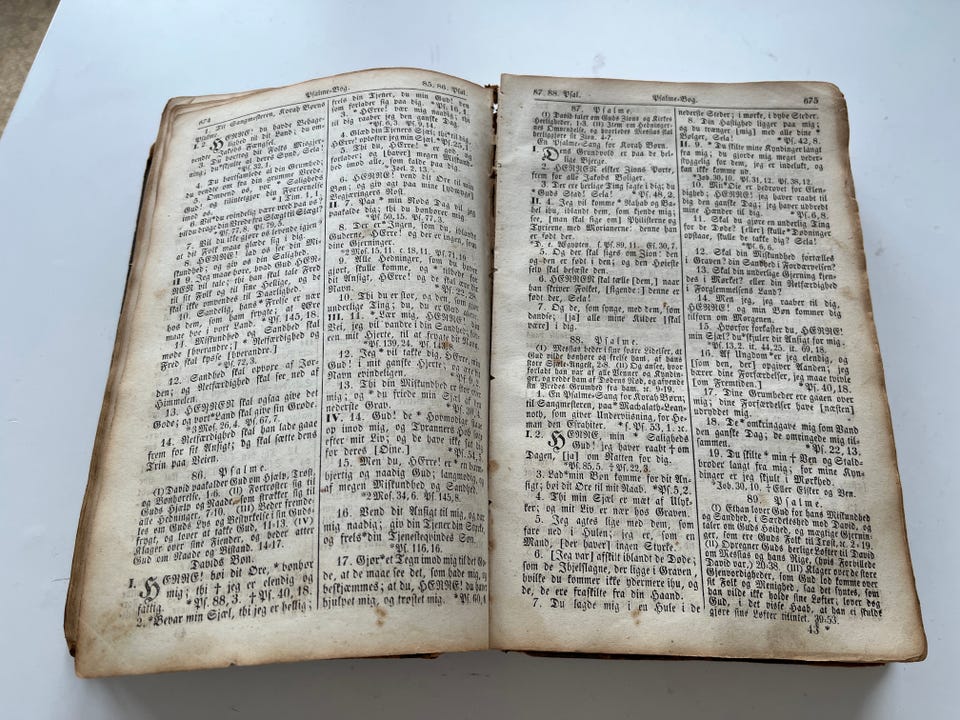 674 Psalme-Bog. 85. 86. Psal.
1. Til Sangmesteren, Korah Børns
Psalme.
I. 2. HERRE! du havde Behage-
lighed til dit Land; du om-
vendte Jakobs Fængsel.
3. Du borttog dit Folks Misgjer-
ning, du *skjulte al deres Synd, Sela!
*Ps. 32, 1.
4. Du bortsamlede al din Grumhed;
du vendte om fra din grumme Vrede.
5. vor Saligheds
Gud! og tilintetgjør din Fortørnelse
imod os. *1 Tim. 1, 1.
6. Vil *du evindelig være vred paa os?
vil du drage din Vrede fra Slægt til Slægt?
*Ps. 77, 8. Ps. 79, 5.
7. Vil du ikke gjøre os levende igjen,
at dit Folk maae glæde sig i dig.
8. HERRE! lad os see din Mi-
skundhed; og giv os din Salighed.
II. 9. Jeg maae høre, hvad Gud HER-
REN vil tale; thi han skal tale Fred
til sit Folk og til sine Hellige, og de
skal ikke omvendes til Daarlighed.
10. Sandelig, hans *Frelse er nær
hos dem, som ham frygte; at Ære
maae boe i vort Land. *Ps. 145, 18.
11. Miskundhed og Sandhed skal
møde [hverandre;] *Retfærdighed og
Fred skal kysse [hverandre.]
*Ps. 72, 3.
12. Sandhed skal opvoxe af Jor-
den; og Retfærdighed skal see ned af
Himmelen.
13. HERREN skal ogsaa give det
Gode; og vort *Land skal give sin Grøde.
*3 Mos. 26, 4. Ps. 67, 7.
14. Retfærdighed skal han lade gaae
frem for sit Ansigt; og skal sætte dens
Trin paa Veien.
86. Psalme.
(I) David paakalder Gud om Hjælp, Trøst,
og Bønhørelse, 1-6. (II) Fortrøster sig til
Guds Hjælp og Naade, som strækker sig til
alle Hedninger, 7-10. (III) Beder fremde-
les om Guds Lys og Bestyrkelse i sin Guds-
frygt, og lover at takke Gud, 11-13. (IV)
Klager over sine Fiender, og beder atter
om Guds Naade og Bistand. 14-17.
Davids Bøn.
I. HERRE! bøi dit Øre, *bønhør
mig; thi † jeg er elendig og
fattig. *Ps. 88, 3. † Ps. 40, 18.
2. *Bevar min Sjæl, thi jeg er hellig;
frels din Tjener, du min Gud! den
som forlader sig paa dig. *Ps. 16, 1.
3. *HErre! vær mig naadig; thi
jeg raaber til dig den ganske Dag.
*Ps. 6, 3. Ps. 9, 14.
4. Glæd din Tjeners Sjæl, thi til dig,
HErre! opløfter jeg min Sjæl. *Ps. 25, 1.
5. Thi du, HErre! er god og
forlader; og [haver] megen Miskundhed
imod alle, som kalde paa dig.
*Joel. 2, 13.
6. HERRE! vend dit Øre til min
Bøn; og giv agt paa mine [ydmyge]
Begjerings Røst.
II. 7. Paa *min Nøds Dag vil jeg
paakalde dig; thi du bønhører mig.
*Ps. 50, 15. Ps. 77, 3.
8. Der er *Ingen, som du, iblandt
Guderne, HErre! og der er ingen, som
dine Gjerninger.
*2 Mos. 15, 11. c. 18, 11. Ps. 71, 19.
9. Alle Hedninger, som du haver
gjort, skulle komme, og *tilbede for
dit Ansigt, HErre! og de skal ære dit
Navn.
10. Thi du er stor, og den, som gjør
underlige Ting; du, du er Gud alene.
III. 11. *Lær mig, HERRE! din
Vei, jeg vil vandre i din Sandhed; for-
een mit Hjerte, til at frygte dit Navn.
*Ps. 139, 24. Ps. 143, 8.
12. Jeg *vil takke dig, HErre, min
Gud! i mit ganske Hjerte; og ære dit
Navn evindeligen.
13. Thi din Miskundhed er stor over
mig, og *du friede min Sjæl af den
nederste Grav.
IV. 14. Gud! de *Hovmodige staae
op imod mig, og Tyranners Hob staae
efter mit Liv; og de have ikke sat dig
for deres [Øine.]
15. Men du, HErre! er *en barm-
hjertig og naadig Gud; langmodig,
og megen Miskundhed og Sandhed.
*2 Mos. 34, 6. Ps. 145, 8.
16. Vend dit Ansigt til mig, og vær
mig naadig; giv din Tjener din Styrke,
og frels *din Tjenesteqvindes Søn.
*Ps. 116, 16.
17. Gjør *et Tegn imod mig til det Go-
de, at de maae see det, som hade mig, og
beskjæmmes; at du, HERRE! du haver
hjulpet mig, og trøstet mig.
87. 88. Psal. Psalme-Bog. 675
87. Psalme.
(I) David taler om Guds Zions og Kirkes
Herlighed. 1-3. (II) Item om Hedninger-
nes Omvendelse, og hvorledes Messias skal
herliggjøre sit Zion. 4-7.
En Psalme-Sang for Korah Børn.
I. Dens Grundvold er paa de hel-
lige Bjerge.
2. HERREN elsker Zions Porte,
frem for alle Jakobs Boliger.
3. Der ere herlige Ting sagte i dig; du
*Guds Stad! Sela! *Ps. 48, 2.
II. 4. Jeg vil komme *Rahab og Ba-
bel ihu, iblandt dem, som kjende mig;
see, man skal sige om Philisterne og
Tyrierne med Morianerne: denne er
født der.
*D. e. Ægypten. f. Ps. 89, 11. Es. 30, 7.
5. Og der skal siges om Zion: den
og den er født i den; og den Høieste
selv skal befæste den.
6. HERREN skal tælle [dem,] naar
han skriver Folket, [sigende:] denne er
født der, Sela!
7. Og de, som synge, med dem, som
dandse; [ja] alle mine Kilder [skal
være] i dig.
88. Psalme.
(I) Messias beder i sine svare Lidelser, at
Gud vilde bønhøre og frelse ham, af hans
store Sjæle-Angest, 2-8. (II) Og anseer, hvor-
ledes han var forladt af alle Venner og Kyndin-
ger, og redde ham af Dødens Nød, og afvende
sin Vredes Grumhed fra ham. v. 9-19.
1. En Psalme-Sang for Korah Børn;
til Sangmesteren, paa *Machalath-Lean-
noth, som giver Underviisning, for He-
man den Esrahiter. *f. Ps. 53, 1. 2c.
I. 2. HERRE, min *Saligheds
Gud! jeg haver raabt † om
Dagen, [ja] om Natten for dig.
*Ps. 85, 5. † Ps. 22, 3.
3. Lad *min Bøn komme for dit An-
sigt; bøi dit Øre til mit Raab. *Ps. 5, 2.
4. Thi min Sjæl er mæt af Ulyk-
ker; og mit Liv er nær hos Graven.
5. Jeg agtes lige med dem, som
fare ned i Hulen; jeg er, som en
Mand, [der haver] ingen Styrke.
6. [Jeg var] afskilt iblandt de Døde;
som de Ihjelslagne, der ligge i Graven,
hvilke du kommer ikke ydermere ihu, og
de, de ere fraskilte fra din Haand.
7. Du lagde mig i en Hule i de
nederste Steder; i mørke, i dybe Steder.
8. Din Hastighed ligger paa mig;
og du trænger [mig] med alle dine *
Bølger, Sela! *Ps. 42, 8.
II. 9. *Du skilte mine Kyndinger langt
fra mig; du gjorde mig meget veder-
styggelig for dem, jeg er indelukt, og
kan ikke komme ud.
*Job. 30, 10. Ps. 31, 12. Ps. 38, 12.
10. Mit *Øie er bedrøvet for Elen-
dighed; HERRE! jeg haver raabt til
dig den ganske Dag; jeg haver udbredt
mine Hænder til dig. *Ps. 6, 8.
11. Skal du gjøre en underlig Ting
for de Døde? [eller] skulle *Dødninger
opstaae, skulle de takke dig? Sela!
*Ps. 6, 6.
12. Skal din Miskundhed fortælles
i Graven? din Sandhed i Fordærvelsen?
13. Skal din underlige Gjerning kjen-
des i Mørket? eller din Retfærdighed
i Forglemmelsens Land?
14. Men jeg, jeg raaber til dig,
HERRE! og min Bøn kommer dig
tilforn om Morgenen.
15. Hvorfor forkaster du, HERRE!
min Sjæl? du *skjuler dit Ansigt for mig.
*Ps. 13, 2. it. 44, 25. it. 69, 18.
16. Af Ungdom *er jeg elendig, og
[som den, der] opgiver Aanden; jeg
bærer dine Forfærdelser, jeg maae tvivle
[om Fremtiden.] *Ps. 40, 18.
17. Dine Grumheder ere gaaen over
mig; dine Forfærdelser have [næsten]
udryddet mig.
18. De *omkringgave mig som Vand
den ganske Dag; de omringede mig til-
sammen. *Ps. 22, 13.
19. Du skilte *min † Ven og Stald-
broder langt fra mig; for mine Kyn-
dinger er jeg skjult i Mørkhed.
*Job. 30, 10. † Eller Elsker og Ven.
89. Psalme.
(I) Ethan lover Gud for hans Miskundhed
og Sandhed, i Særdeleshed med David, og
taler om Guds Høihed, og mægtige Gjernin-
ger, som ere Guds Folk til Trøst, v. 2-19.
(II) Opregner Guds herlige Løfter til David
om Messias og hans Rige, (hvis Forbillede
David var.) 20-38. (III) Klager over de store
Gjenvordigheder, som Gud lod komme over
sit Folk og Menighed, saa det syntes, som
han vilde ikke holde sine Løfter; lover dog
Gud, i det visse Haab, at han ei skulde
gjøre sine Løfter tilintet. 39-53.
43 *